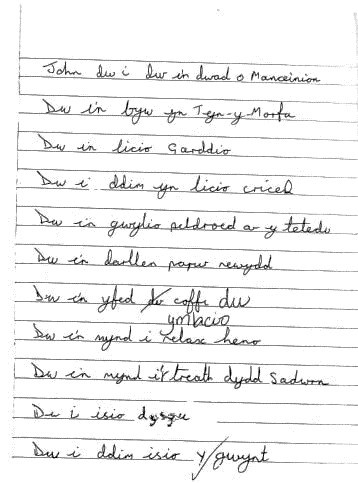 John dw i dw i'n dwad o Manceinion
Dw i'n byw yn Tyn-y-Morfa
Dw i'n licio Garddio
Dw i ddim yn licio criced
Dw i'n gwylio peldroed ar y teledu
Dw i'n darllen papur newydd
Dw i'n yfed coffi du
ymlacio
Dw i'n mynd i relax heno
Dw i'n mynd i'r treath dydd Sadwrn
Dw i isio dysgu
Dw i ddim isio y gwynt